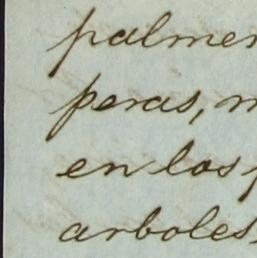 palmer
peras, m
en los p
arboles